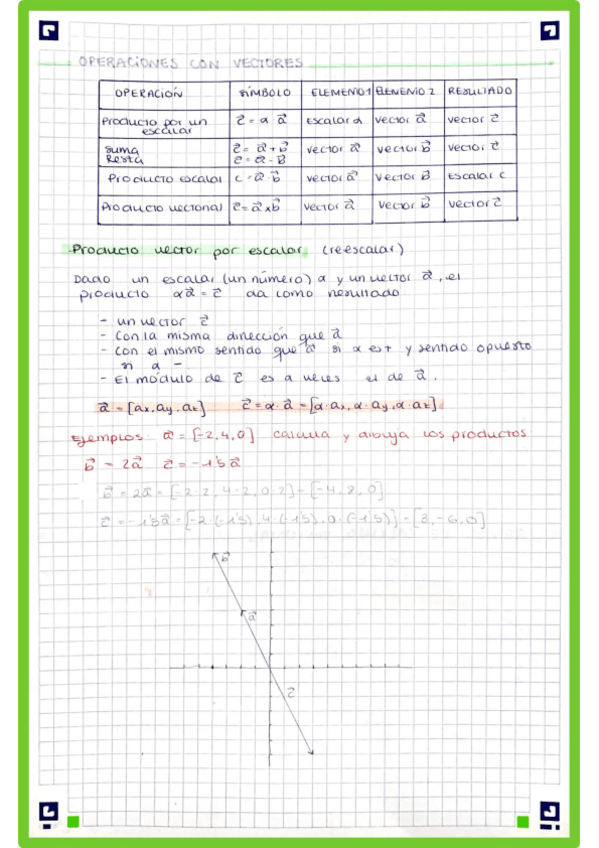 OPERACIONES CON VECTORES
OPERACIÓN SÍMBOLO ELEMENTO 1 ELEMENTO 2 RESULTADO
Producto por un escalar c⃗ = α · a⃗ Escalar α vector a⃗ vector c⃗
Suma c⃗ = a⃗ + b⃗ vector a⃗ vector b⃗ vector c⃗
Resta c⃗ = a⃗ - b⃗
Producto escalar c = a⃗ · b⃗ vector a⃗ vector b⃗ Escalar c
Producto vectorial c⃗ = a⃗ x b⃗ vector a⃗ vector b⃗ vector c⃗
-Producto vector por escalar (reescalar)
Dado un escalar (un número) α y un vector a⃗, el
producto αa⃗ = c⃗ da como resultado
- un vector c⃗
- Con la misma dirección que a⃗
- Con el mismo sentido que a⃗ si α es + y sentido opuesto
si α -
- El módulo de c⃗ es α veces el de a⃗.
a⃗ = [ax, ay, az] c⃗ = α · a⃗ = [α · ax, α · ay, α · az]
Ejemplos a⃗ = [-2, 4, 0] calcula y dibuja los productos
b⃗ = 2a⃗ c⃗ = -1'5a⃗
b⃗ = 2a⃗ = [-2·2, 4·2, 0·2] = [-4, 8, 0]
c⃗ = -1'5a⃗ = [-2·(-1'5), 4·(-1'5), 0·(-1'5)] = [3, -6, 0]
b⃗
a⃗
c⃗